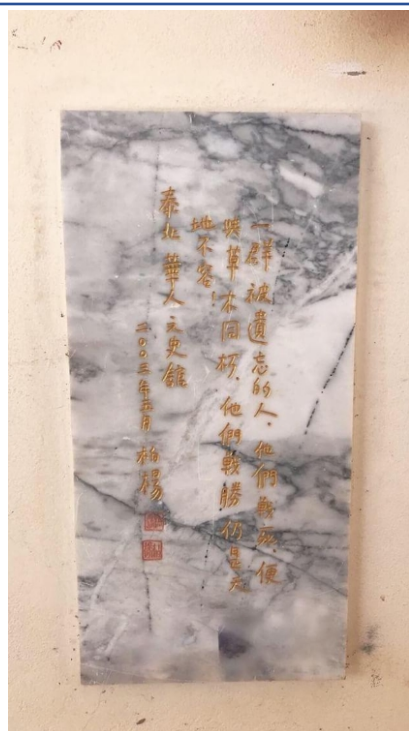 一群被遺忘的人，他們戰死，便
與草木同朽，他們戰勝仍是天
地不容！
泰北華人文史館
二〇〇三年五月 柏楊